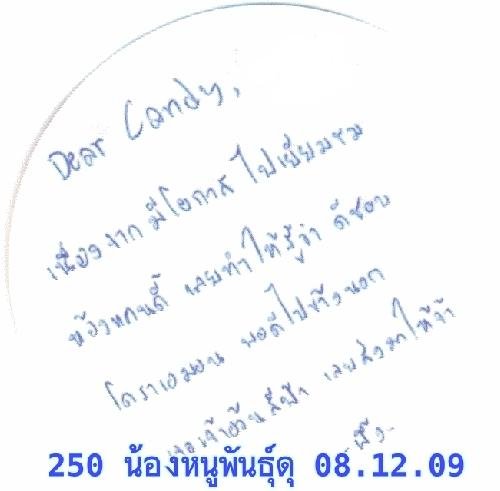 Dear Candy,
เนื่องจาก มีโอกาส ไปเยี่ยมชม
ห้องแคนดี้ เลยทำให้รู้ว่า ดีชอบ
โดราเอมอน พอดีไปข้างนอก
เจอเจ้าอ้วนสีฟ้า เลยส่งมาให้จ้า
250 น้องหนูพันธุ์ดุ 08.12.09